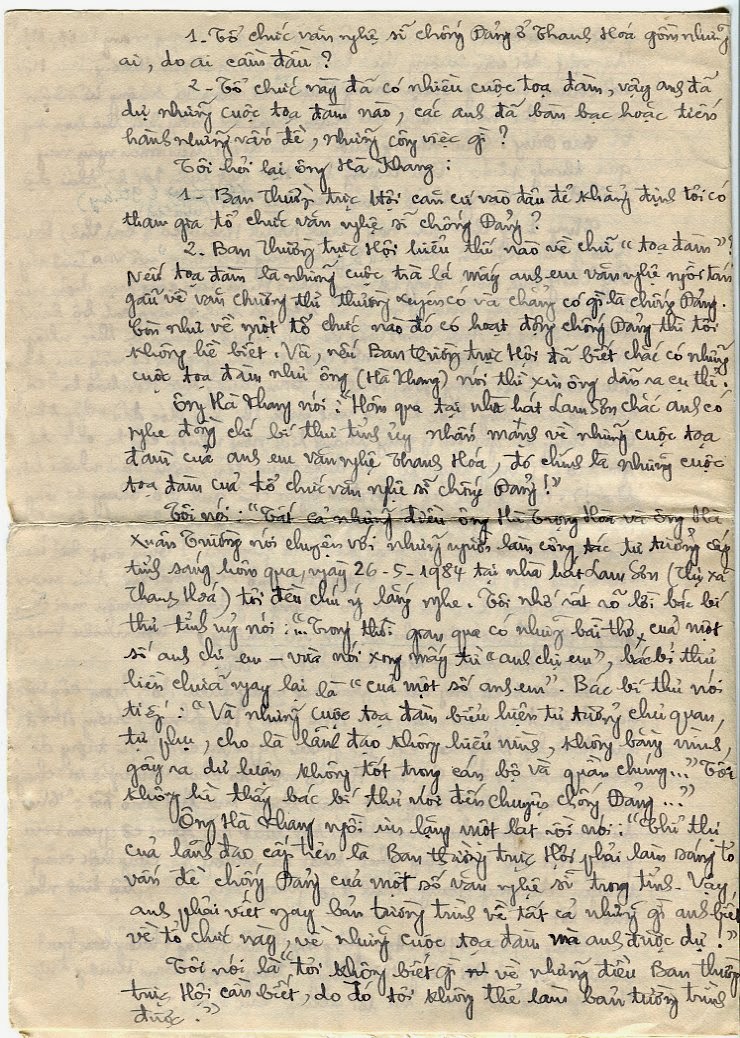 1- Tổ chức văn nghệ sĩ chống Đảng ở Thanh Hoá gồm những
ai, do ai cầm đầu ?
2- Tổ chức này đã có nhiều cuộc toạ đàm, vậy anh đã
dự những cuộc toạ đàm nào, các anh đã bàn bạc hoặc tiến
hành những vấn đề, những công việc gì ?
Tôi hỏi lại ông Hà Khang :
1- Ban thường trực Hội căn cứ vào đâu để khẳng định tôi có
tham gia tổ chức văn nghệ sĩ chống Đảng ?
2. Ban thường trực Hội hiểu thế nào về chữ “toạ đàm” ?
Nếu toạ đàm là những cuộc trà lá mấy anh em văn nghệ ngồi tán
gẫu về văn chương thì thường xuyên có và chẳng có gì là chống Đảng.
Còn như về một tổ chức nào đó có hoạt động chống Đảng thì tôi
không hề biết. Và, nếu Ban thường trực Hội đã biết chắc có những
cuộc toạ đàm như ông (Hà Khang) nói thì xin ông dẫn ra cụ thể.
Ông Hà Khang nói : “Hôm qua tại nhà hát Lam Sơn chắc anh có
nghe đồng chí bí thư tỉnh ủy nhấn mạnh về những cuộc toạ
đàm của anh em văn nghệ Thanh Hóa, đó chính là những cuộc
toạ đàm của tổ chức văn nghệ sĩ chống Đảng !”
Tôi nói : “Tất cả những điều ông Hà Trọng Hoà và ông Hà
Xuân Trường nói chuyện với những người làm công tác tư tưởng cấp
tỉnh sáng hôm qua, ngày 26-5-1984 tại nhà hát Lam Sơn (Thị xã
Thanh Hoá) tôi đều chú ý lắng nghe. Tôi nhớ rất rõ lời bác bí
thư tỉnh uỷ nói : “...Trong thời gian qua có những bài thơ của một
số anh chị em – vừa nói xong mấy từ “anh chị em”, bác bí thư
liền chữa ngay lại là “của một số anh em”. Bác bí thư nói
tiếp : “Và những cuộc toạ đàm biểu hiện tư tưởng chủ quan,
tự phụ, cho là lãnh đạo không hiểu mình, không bằng mình,
gây ra dư luận không tốt trong cán bộ và quần chúng...” Tôi
không hề thấy bác bí thư nói đến chuyện chống Đảng ...”
Ông Hà Khang ngồi im lặng một lát rồi nói : “Thị
của lãnh đạo cấp trên là Ban thường trực Hội phải làm sáng tỏ
vấn đề chống Đảng của một số văn nghệ sĩ trong tỉnh. Vậy,
anh phải viết ngay bản tường trình về tất cả những gì anh biết
về tổ chức này, về những cuộc toạ đàm mà anh được dự !”
Tôi nói là “tôi không biết gì về những điều Ban thường
trực Hội cần biết, do đó tôi không thể làm bản tường trình
được.”